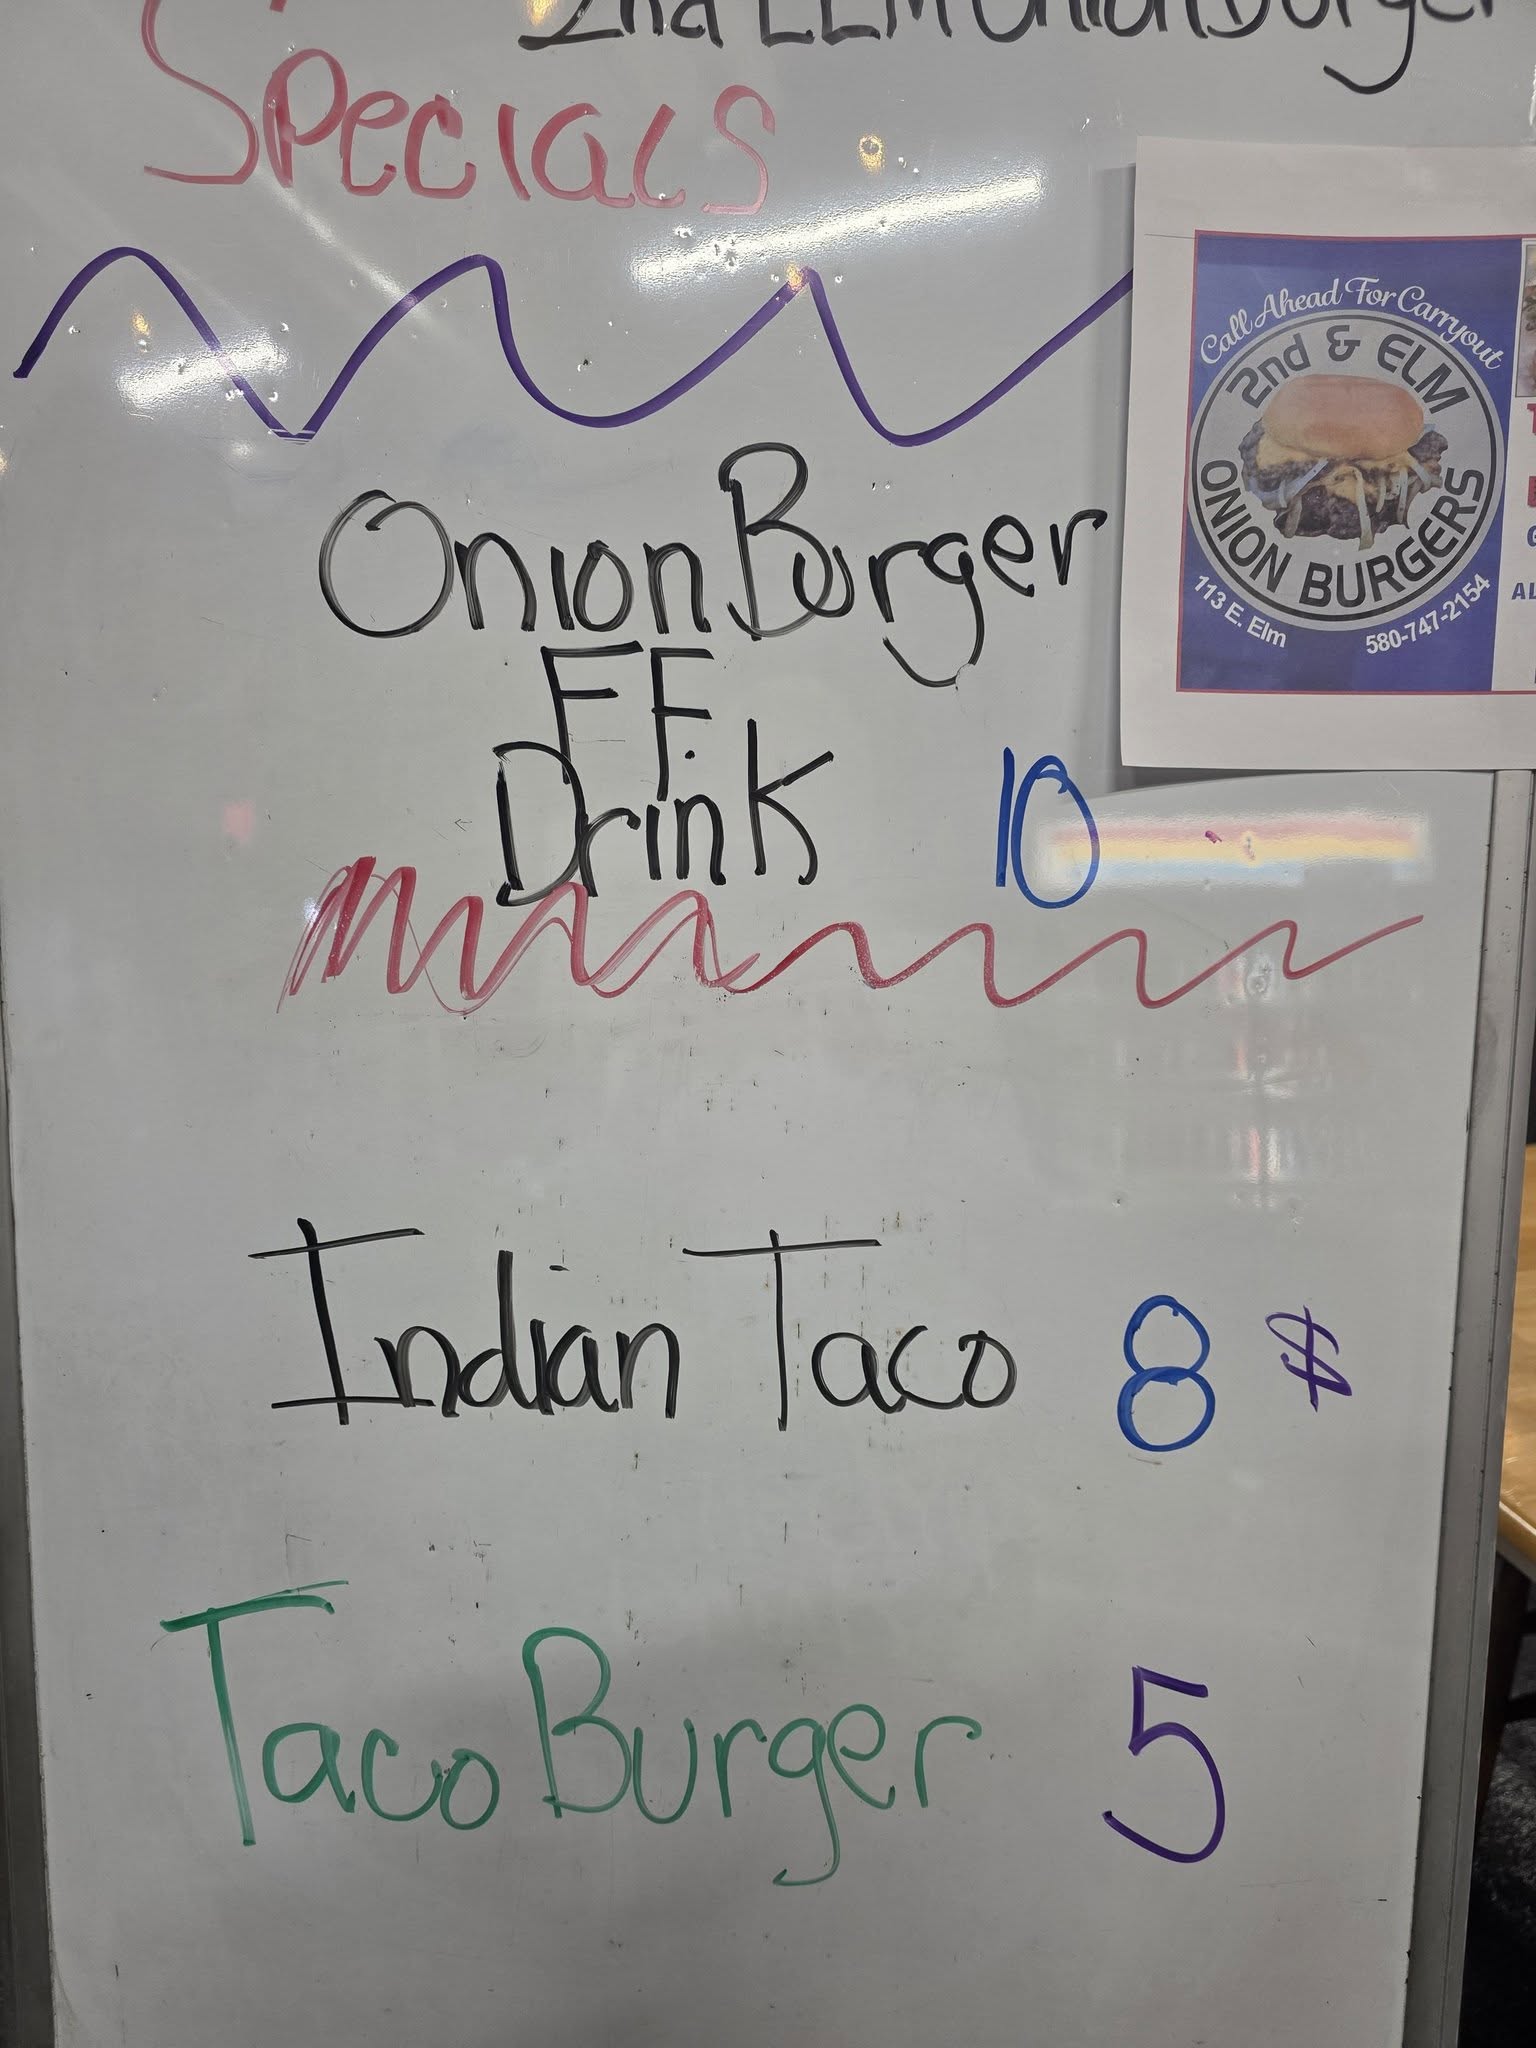 2nd ELM Onion Burger
Specials
Call Ahead For Carryout
2nd & ELM
ONION BURGERS
113 E. Elm
580-747-2154
Onion Burger
F F.
Drink 10
Indian Taco 8 $
Taco Burger 5